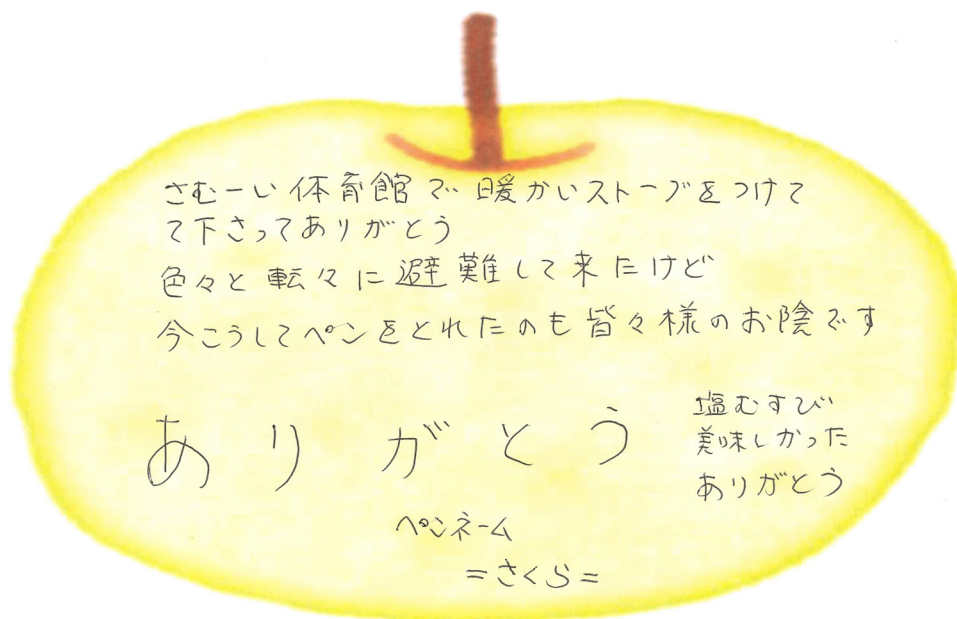 さむーい体育館で暖かいストーブをつけて
て下さってありがとう
色々と転々に避難して来たけど
今こうしてペンをとれたのも皆々様のお陰です
ありがとう
塩むすび
美味しかった
ありがとう
ペンネーム
=さくら=